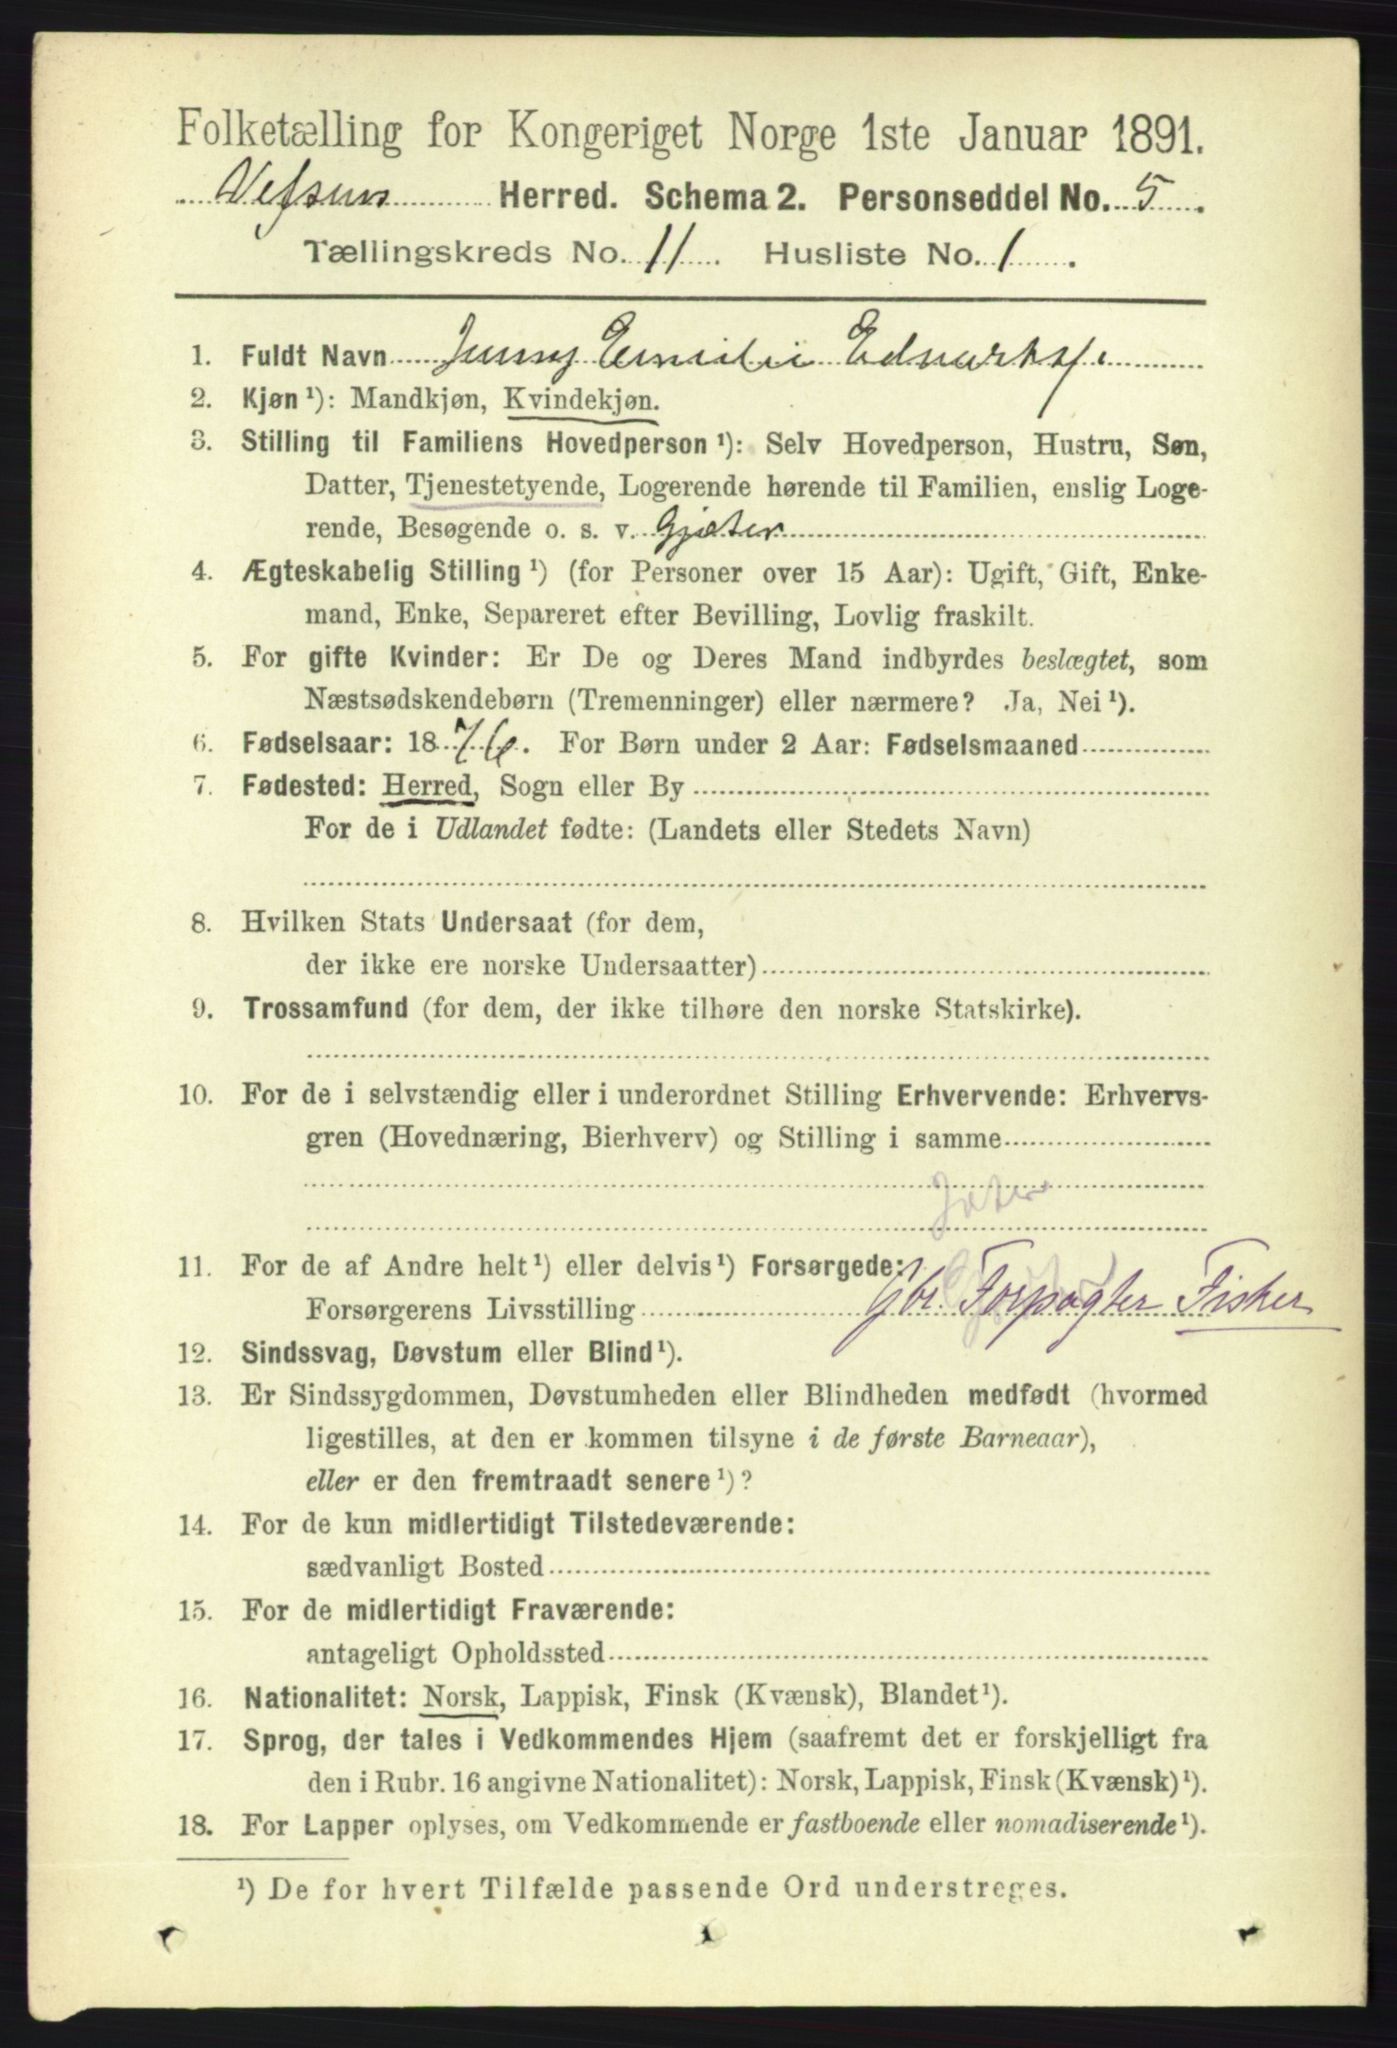 Folketælling for Kongeriget Norge 1ste Januar 1891.
Vefsen Herred. Schema 2. Personseddel No. 5.
Tællingskreds No. 11. Husliste No. 1.
1. Fuldt Navn Jenny Emilie Edvartsf.
2. Kjøn¹): Mandkjøn, Kvindekjøn.
3. Stilling til Familiens Hovedperson¹): Selv Hovedperson, Hustru, Søn,
Datter, Tjenestetyende, Logerende hørende til Familien, enslig Loge-
rende, Besøgende o. s. v. Gjæter
4. Ægteskabelig Stilling¹) (for Personer over 15 Aar): Ugift, Gift, Enke-
mand, Enke, Separeret efter Bevilling, Lovlig fraskilt.
5. For gifte Kvinder: Er De og Deres Mand indbyrdes beslægtet, som
Næstsødskendebørn (Tremenninger) eller nærmere? Ja, Nei¹).
6. Fødselsaar: 1876. For Børn under 2 Aar: Fødselsmaaned
7. Fødested: Herred, Sogn eller By
For de i Udlandet fødte: (Landets eller Stedets Navn)
8. Hvilken Stats Undersaat (for dem,
der ikke ere norske Undersaatter)
9. Trossamfund (for dem, der ikke tilhøre den norske Statskirke).
10. For de i selvstændig eller i underordnet Stilling Erhvervende: Erhvervs-
gren (Hovednæring, Bierhverv) og Stilling i samme
Jæter
11. For de af Andre helt¹) eller delvis¹) Forsørgede:
Forsørgerens Livsstilling Gbr. Forpagter Fisker
12. Sindssvag, Døvstum eller Blind¹).
13. Er Sindssygdommen, Døvstumheden eller Blindheden medfødt (hvormed
ligestilles, at den er kommen tilsyne i de første Barneaar),
eller er den fremtraadt senere¹)?
14. For de kun midlertidigt Tilstedeværende:
sædvanligt Bosted
15. For de midlertidigt Fraværende:
antageligt Opholdssted
16. Nationalitet: Norsk, Lappisk, Finsk (Kvænsk), Blandet¹).
17. Sprog, der tales i Vedkommendes Hjem (saafremt det er forskjelligt fra
den i Rubr. 16 angivne Nationalitet): Norsk, Lappisk, Finsk (Kvænsk)¹).
18. For Lapper oplyses, om Vedkommende er fastboende eller nomadiserende¹).
¹) De for hvert Tilfælde passende Ord understreges.